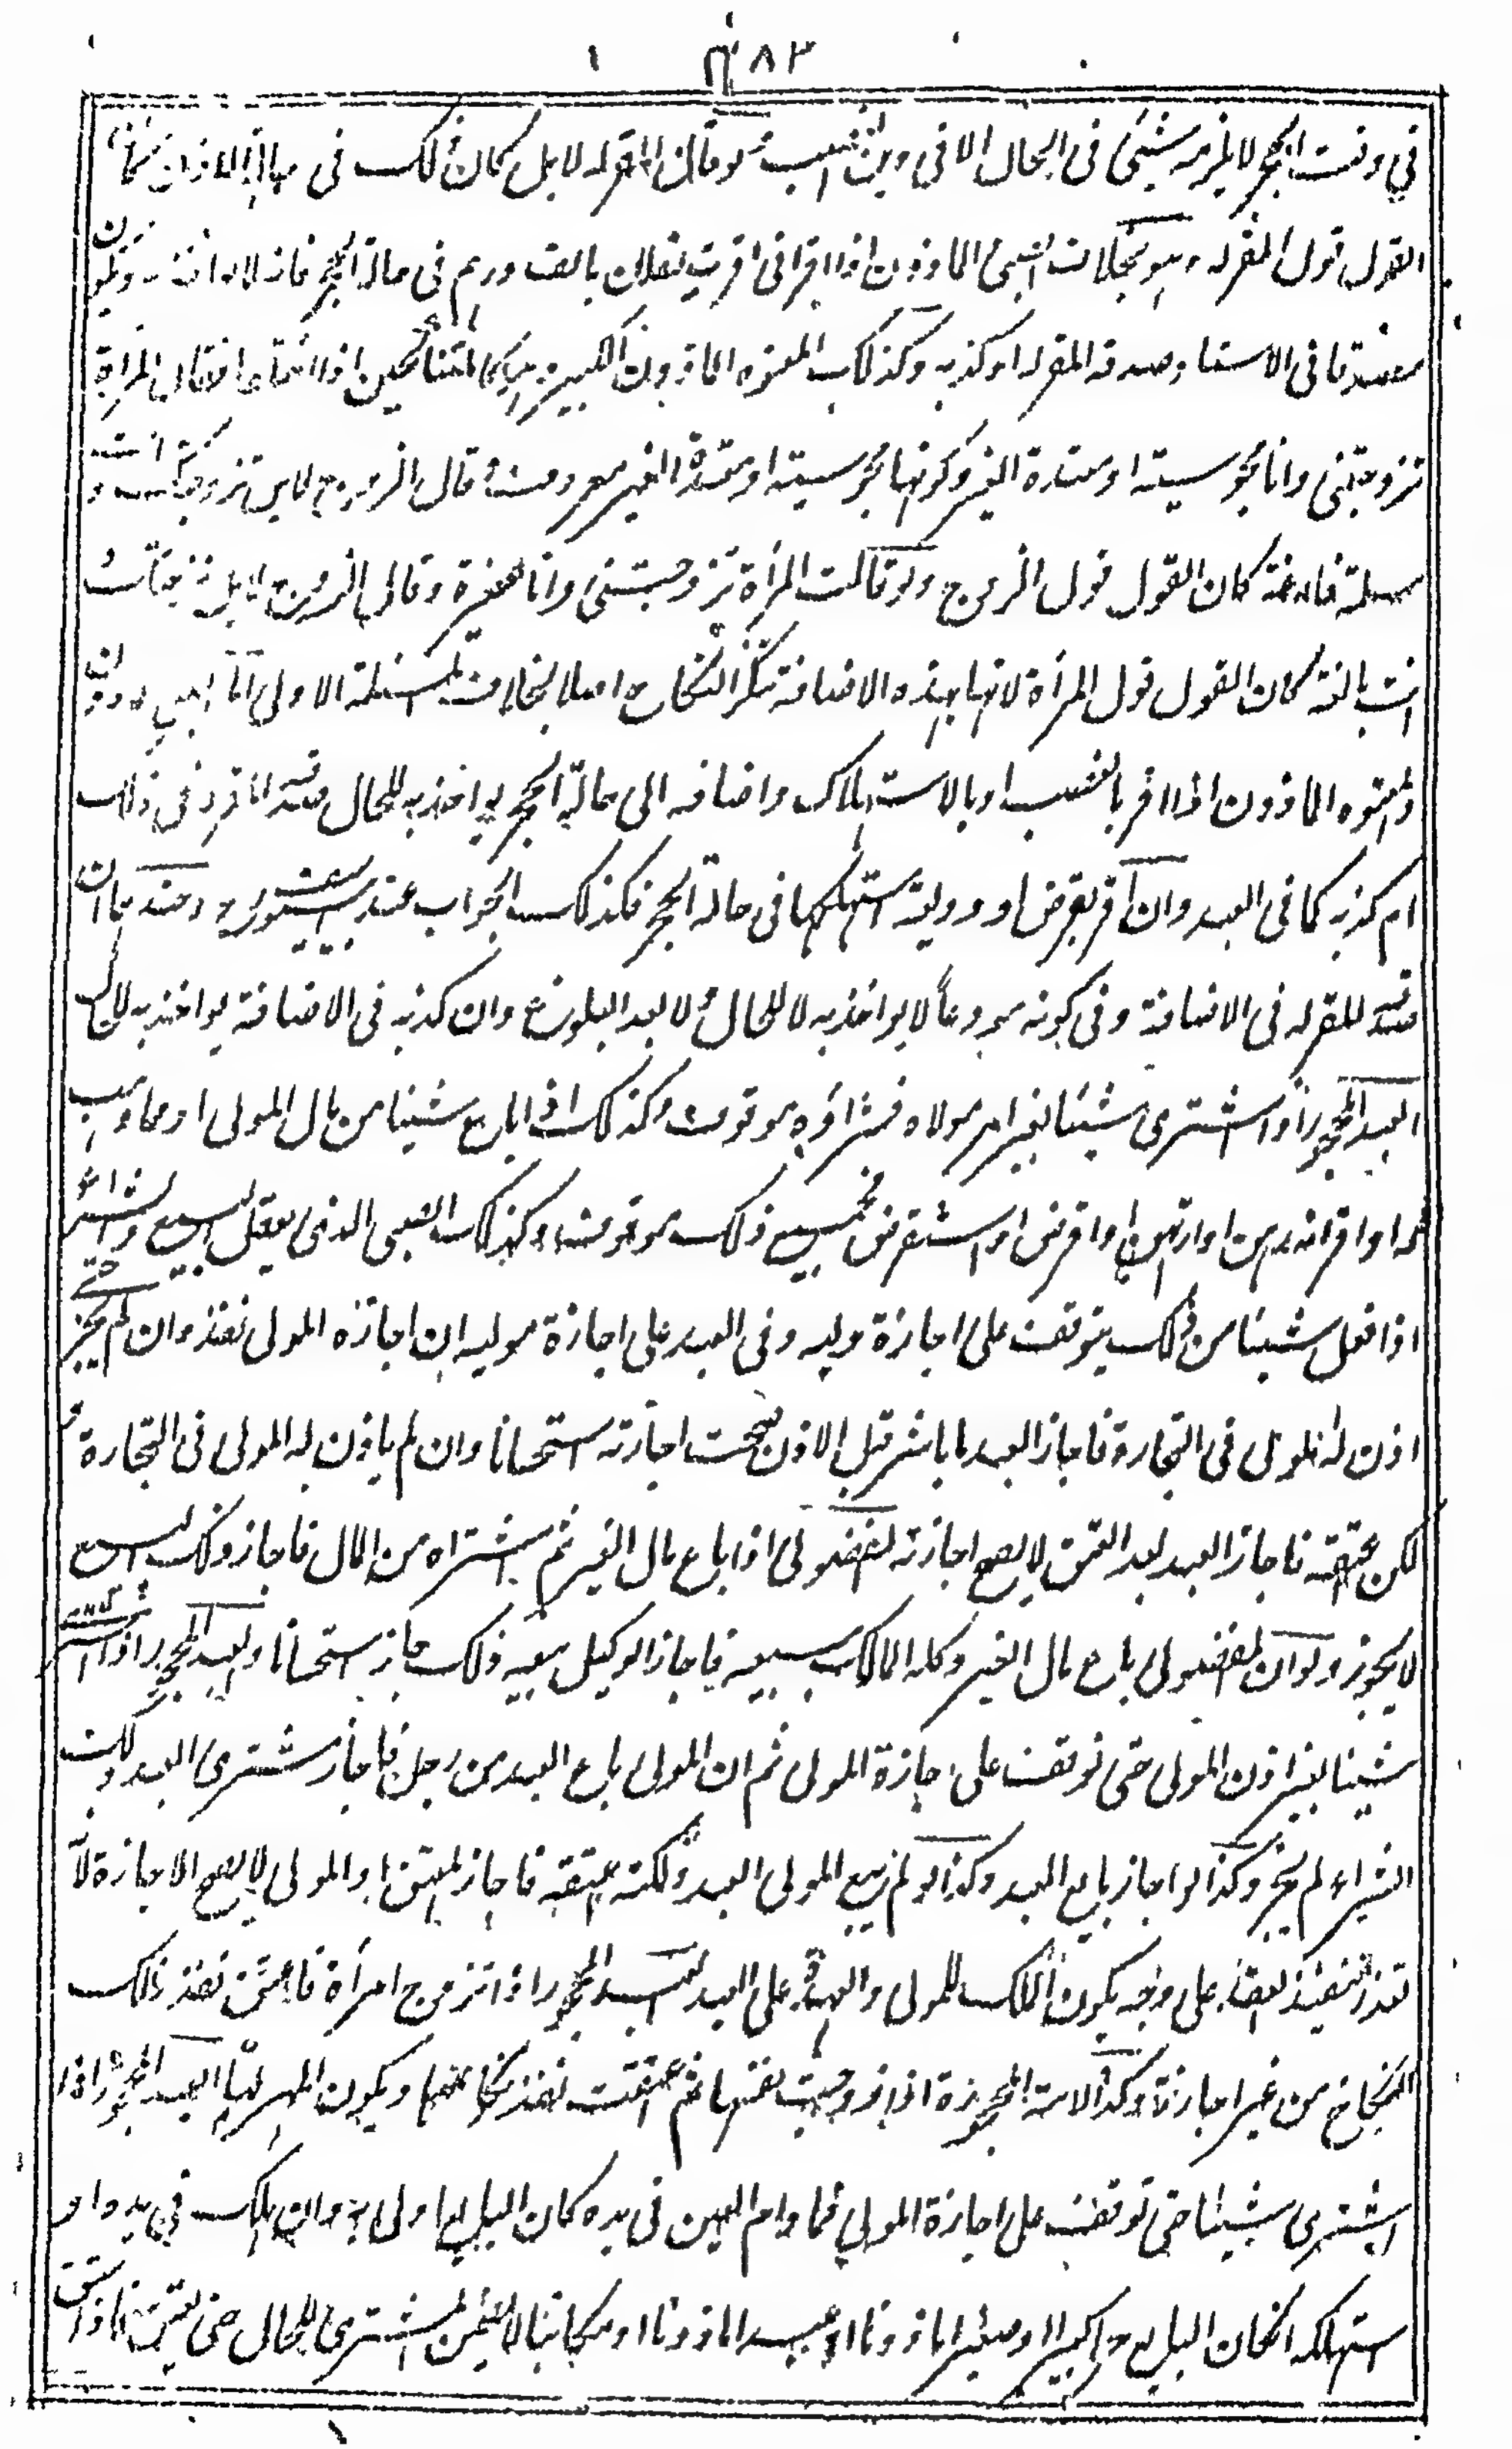 ٤٨٣
في وقت الحجر لا يلزمه شيئ فى الحال الا فى دين الغصب ولو قال المقر له لا بل كان ذلك فى حالة الاذن كان
القول قول المقر له وهو بخلاف الصبى الماذون اذا اقر انى اقررت لفلان بالف درهم فى حالة الحجر فانه لا يؤاخذ به ويكون
مصدقا فى الاسناد صدقه المقر له او كذبه وكذلك المعتوه الماذون الكبير كالمتناكحين اذا اختلفا فقالت المرأة
تزوجتنى وانا مجوسية او معتدة الغير وكونها مجوسية او معتدة الغير معروف قال الزوج لا بل تزوجتك وانت
مسلمة فارغة كان القول قول الزوج ولو قالت المرأة تزوجتنى وانا صغيرة وقال الزوج لا بل تزوجتك
انت بالغة كان القول قول المرأة لانها بهذه الاضافة تنكر النكاح اصلا بخلاف المسئلة الاولى اما الصبى الماذون
والمعتوه الماذون اذا اقر بالغصب او بالاستهلاك واضافه الى حالة الحجر يؤاخذ به للحال صدقه المقر له فى ذلك
ام كذبه كما فى العبد وان اقر بقرض او وديعة استهلكها فى حالة الحجر فكذلك الجواب عند ابى يوسف وعندهما ان
صدقه المقر له فى الاضافة وفى كونه مودعاً لا يؤاخذ به لا للحال ولا بعد البلوغ وان كذبه فى الاضافة يؤاخذ به للحال
العبد المحجور اذا اشترى شيئا بغير امر مولاه فشراؤه موقوف وكذلك اذا باع شيئا من مال المولى او مما وهب
له او اقر انه رهن او ارتهن او اقرض او استقرض فجميع ذلك موقوف وكذلك الصبى الذى يعقل البيع والشراء
اذا فعل شيئا من ذلك يتوقف على اجازة وليه وفى العبد على اجازة موليه ان اجازه المولى نفذ وان لم يجز حتى
اذن له المولى فى التجارة فاجاز العبد ما باشر قبل الاذن صحت اجازته استحسانا وان لم ياذن له المولى فى التجارة و
لكن عتقه فاجاز العبد بعد العتق لا يصح اجازته الفضولى اذا باع مال الغير ثم اشتراه من المال فاجاز ذلك البيع
لا يجوز ولو ان الفضولى باع مال الغير وكله المالك ببيعه فاجاز الوكيل بيعه ذلك جاز استحسانا والعبد المحجور اذا اشترى
شيئا بغير اذن المولى حتى توقف على اجازة المولى ثم ان المولى باع العبد من رجل فاجاز مشترى العبد ذلك
الشراء لم يجز وكذا لو اجاز بايع العبد وكذا لو لم يبيع المولى العبد ولكنه عتقه فاجاز المعتق او المولى لا يصح الاجازة لانه
تعذر تنفيذ العقد على وجه يكون الملك للمولى والعهدة على العبد العبد المحجور اذا تزوج امرأة فاعتق نفذ ذلك
النكاح من غير اجازة وكذا الامة المحجورة اذا زوجت نفسها ثم عتقت نفذ نكاحها ويكون المهر لها العبد المحجور اذا
اشترى شيئا حتى توقف على اجازة المولى فما دام العين فى يده كان البايع اولى به وان هلك فى يده او
استهلكه ان كان البايع حرا كبيرا او صغيرا ماذونا او عبدا ماذونا او مكاتبا لا يضمن المشترى للحال حتى يعتق فاذا اعتق